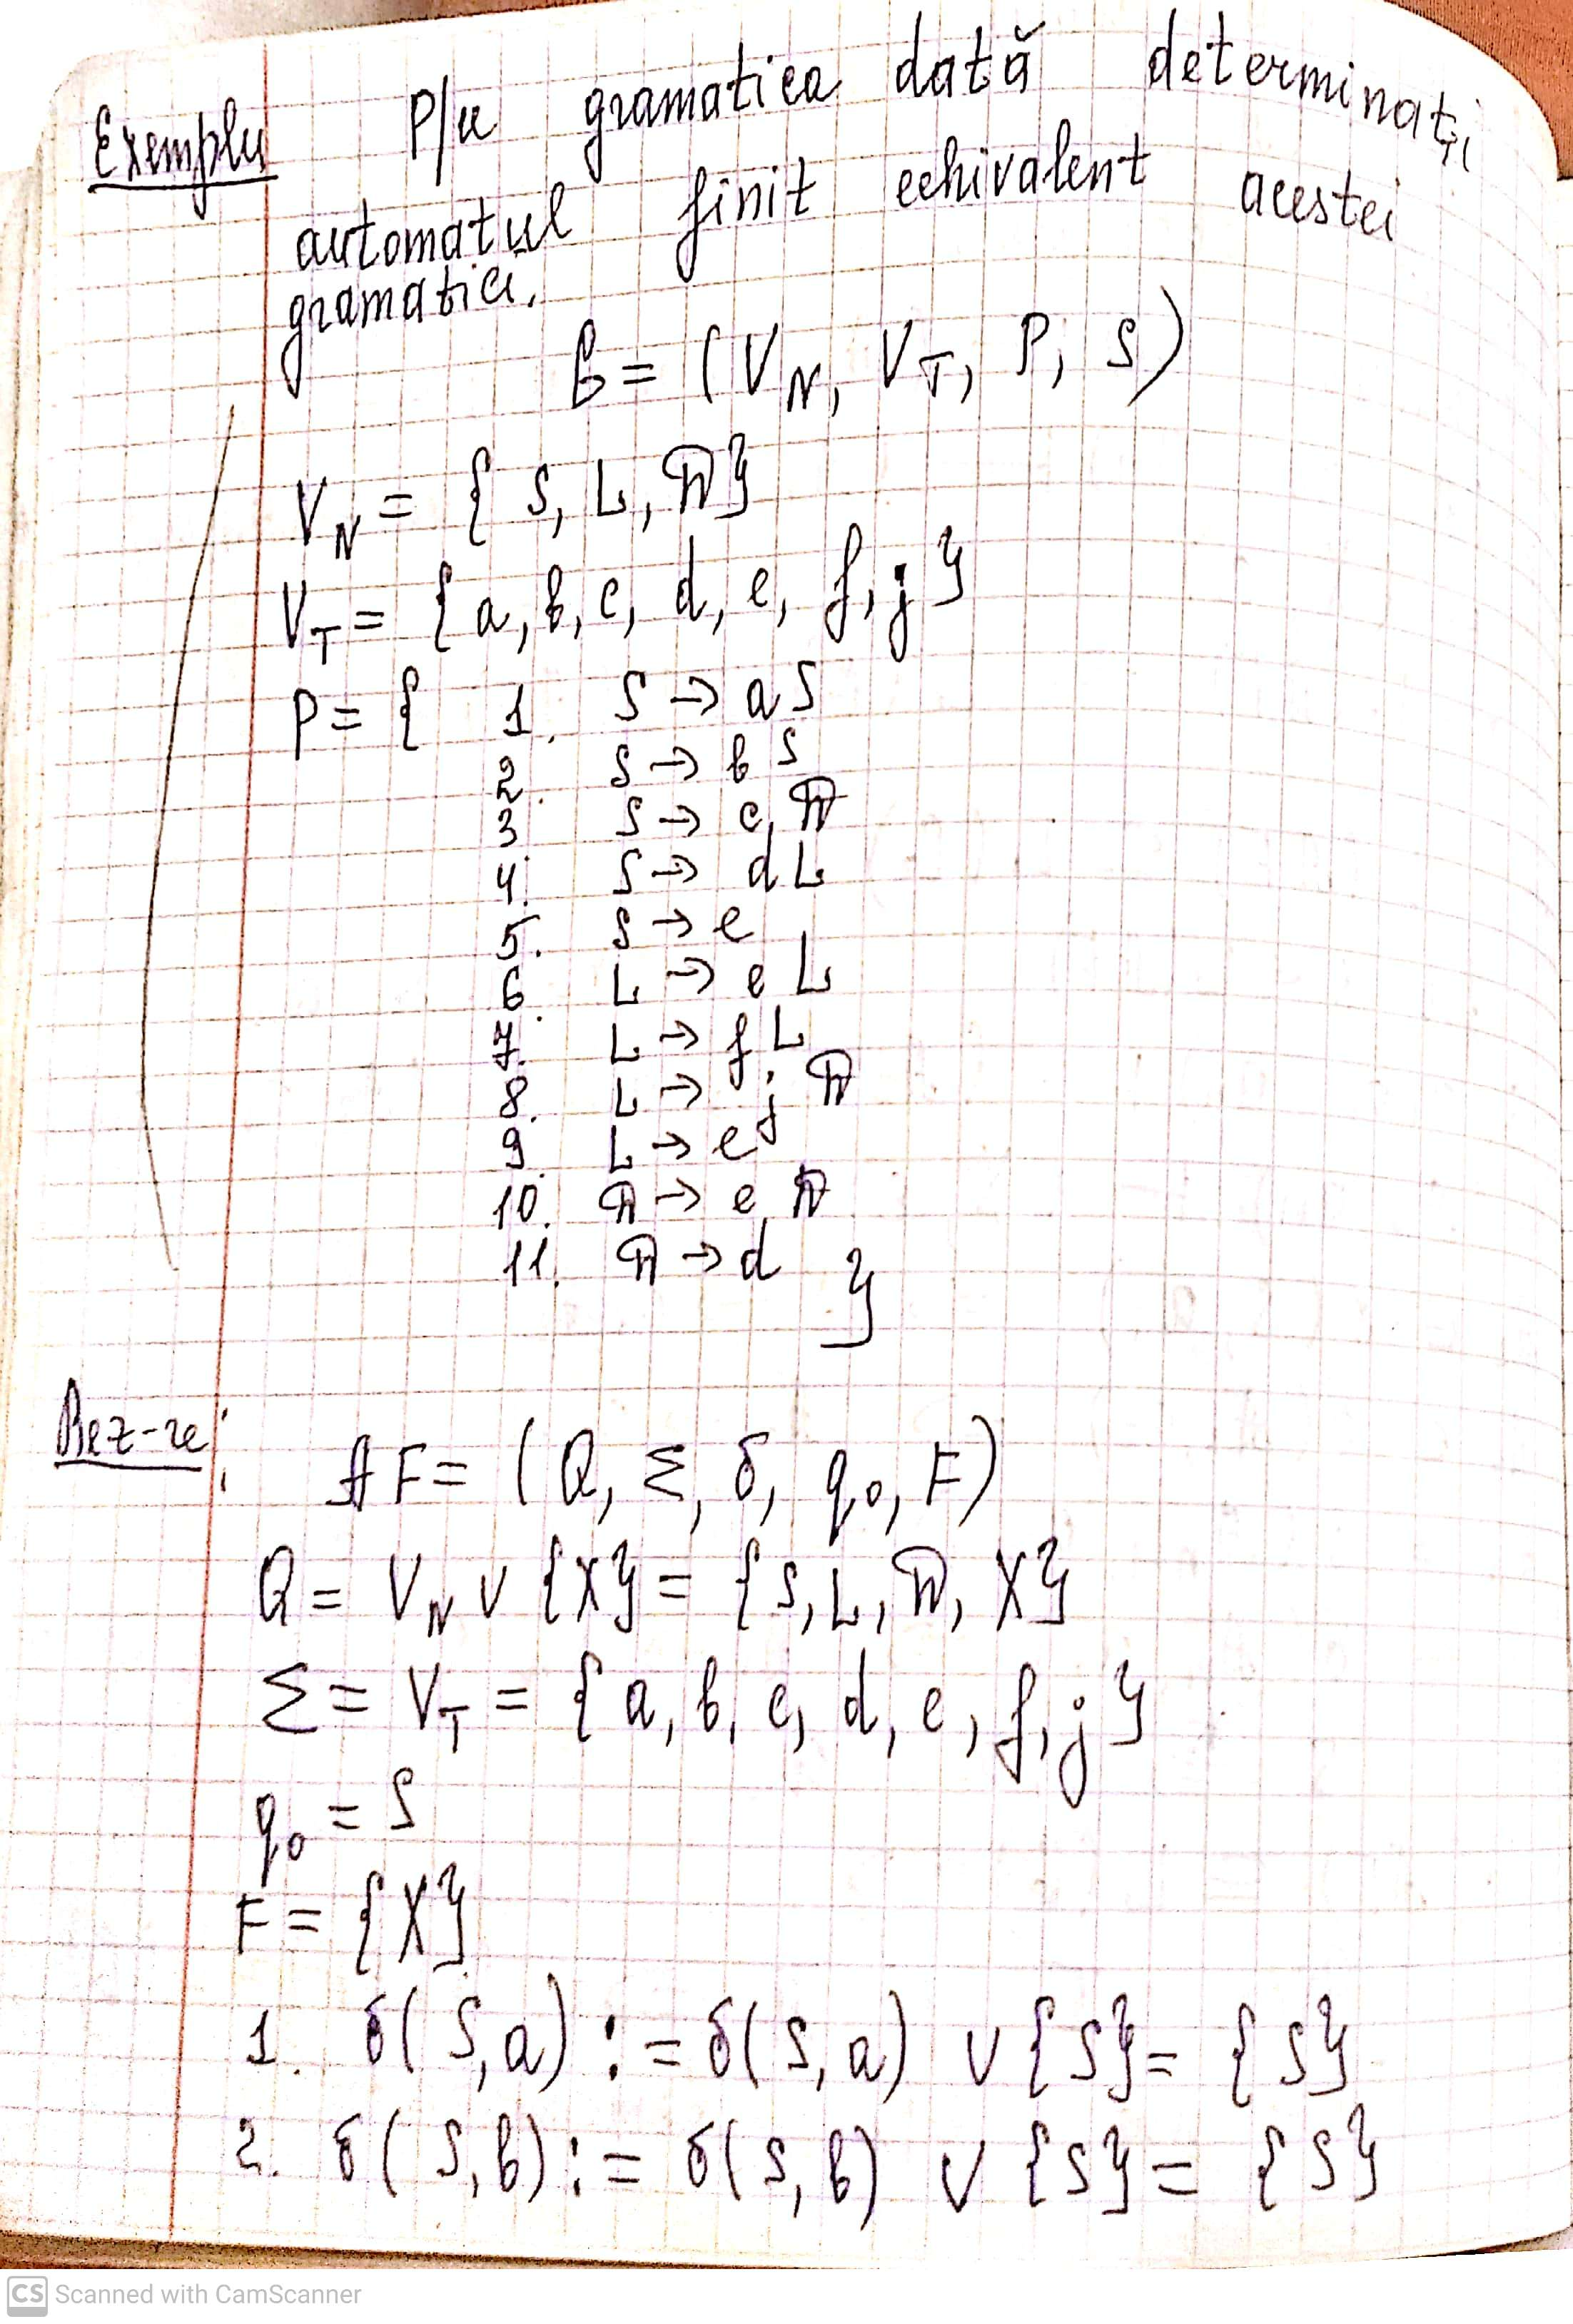 Exemplu P/u gramatica dată determinați
automatul finit echivalent acestei
gramatici.
G = (V_N, V_T, P, S)
V_N = {S, L, D}
V_T = {a, b, c, d, e, f, j}
P = { 1. S → aS
2. S → bS
3. S → cD
4. S → dL
5. S → e
6. L → eL
7. L → fL
8. L → jD
9. L → e
10. D → eD
11. D → d }
Rez-re:
AF = (Q, Σ, δ, q₀, F)
Q = V_N ∪ {X} = {S, L, D, X}
Σ = V_T = {a, b, c, d, e, f, j}
q₀ = S
F = {X}
1. δ(S,a) := δ(S,a) ∪ {S} = {S}
2. δ(S,b) := δ(S,b) ∪ {S} = {S}
CS Scanned with CamScanner